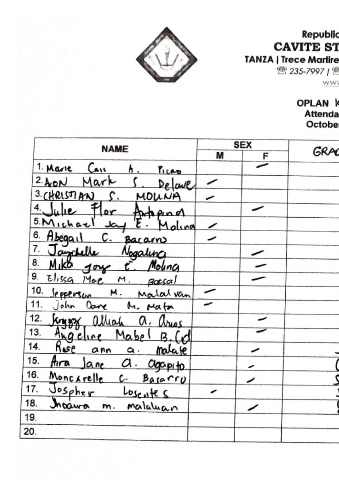 Republic
CAVITE ST
TANZA | Trece Martire
☏ 235-7997 | ☏
www
OPLAN K
Attenda
October
NAME SEX GRAD
M F
1. Marie Cris A. Picao /
2. Mark S. /
3. CHRISTIAN S. MOLINA /
4. Julie Flor /
5. Michael Jay E. Molina /
6. Abegail C. Bacarro /
7. Nogaliza /
8. Mika Joy E. Molina /
9. Elissa Mae M. /
10. Jepperson M. Malalvan /
11. John Dave M. Mata /
12. Alliah A. /
13. Angeline Mabel B. Cid /
14. Rose ann a. malate /
15. Aira Jane A. Agapito /
16. Moncarelle C. Basarro /
17. Jospher Losentes /
18. Jhoanna m. malaluan /
19.
20.